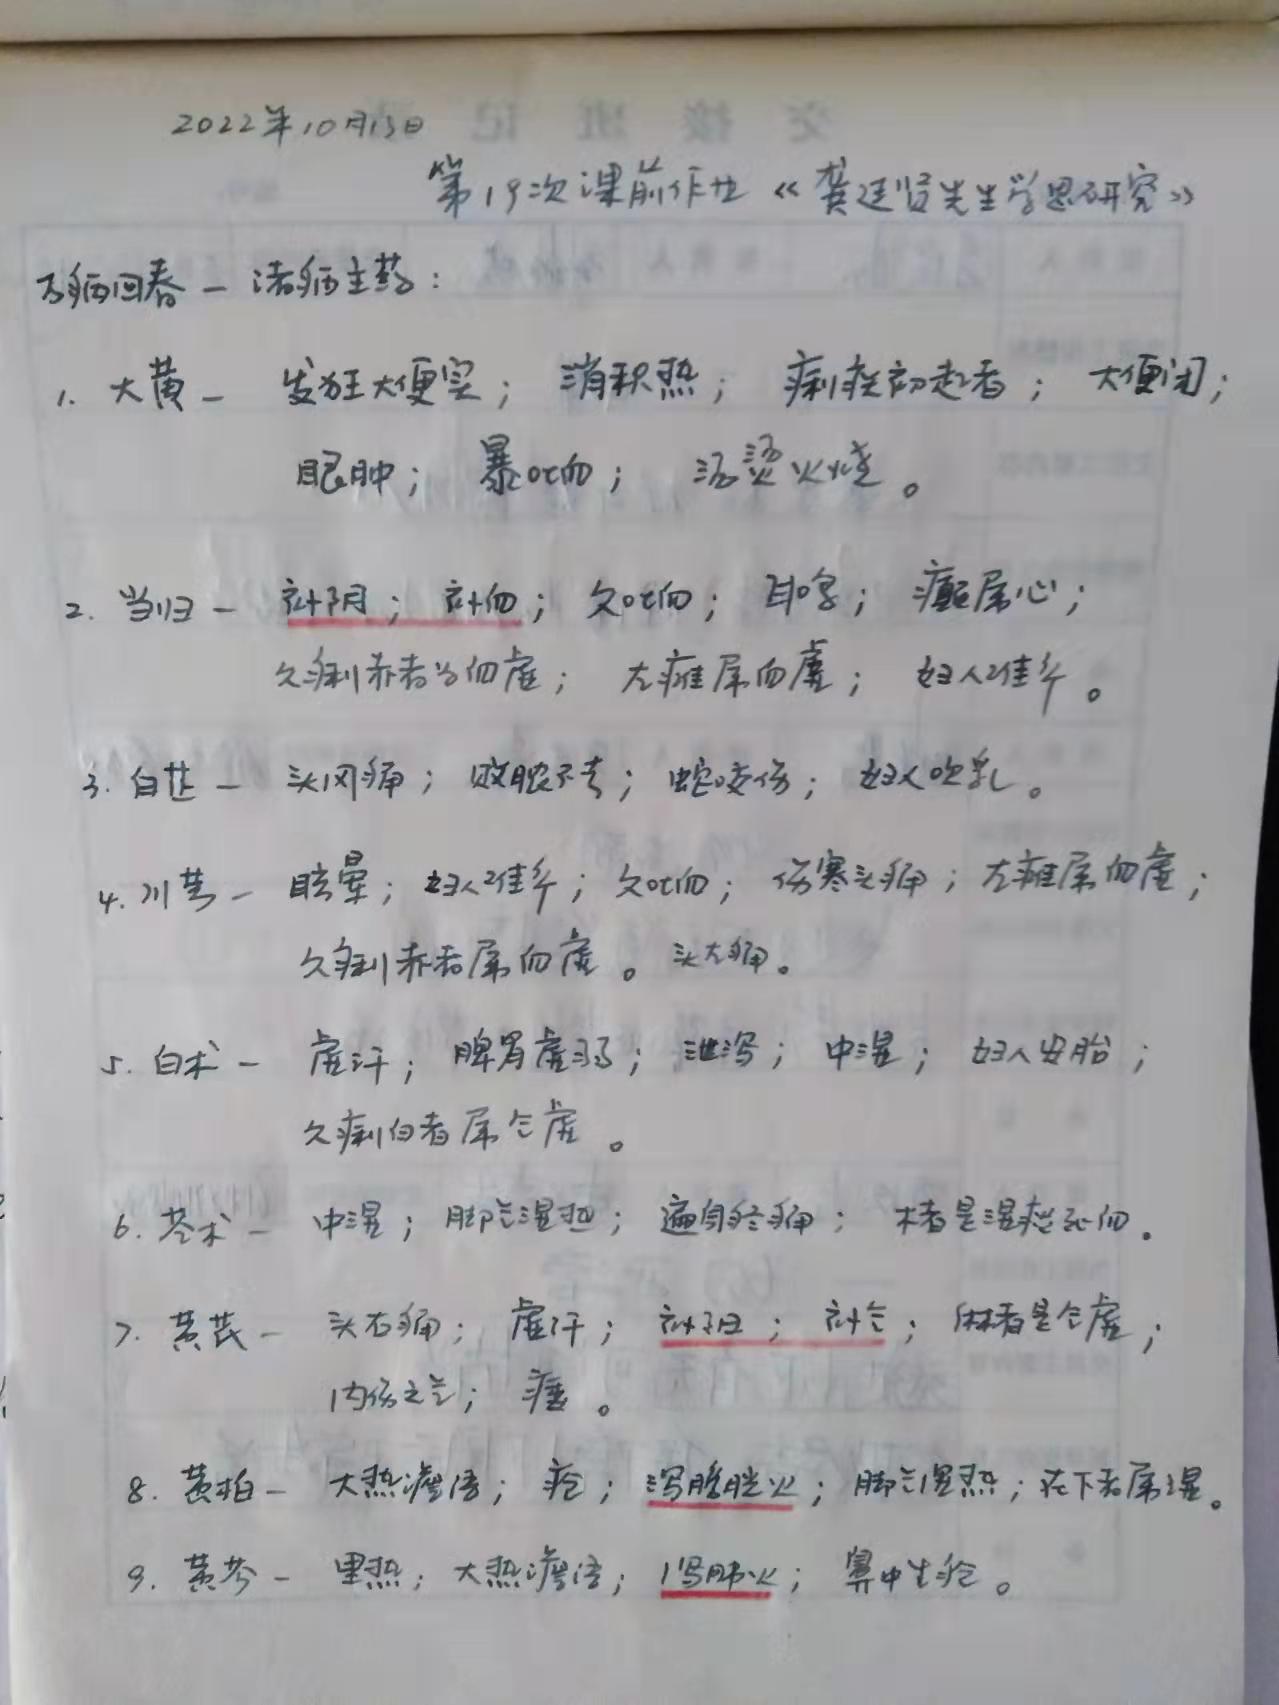 2022年10月13日
第19次课前作业《龚廷贤先生学思研究》
万病回春—诸病主药：
1. 大黄— 发狂大便实； 消积热； 痢疾初起者； 大便闭；
眼肿； 暴吐血； 汤烫火烧。
2. 当归— 补阴； 补血； 久吐血； 耳鸣； 癫属心；
久痢赤者为血虚； 左瘫属血虚； 妇人催生。
3. 白芷— 头风痛； 败脓不去； 蛇咬伤； 妇人吹乳。
4. 川芎— 眩晕； 妇人催生； 久吐血； 伤寒头痛； 左瘫属血虚；
久痢赤者属血虚。 头左痛。
5. 白术— 虚汗； 脾胃虚弱； 泄泻； 中湿； 妇人安胎；
久痢白者属气虚。
6. 苍术— 中湿； 脚气湿热； 遍身疼痛； 木者是湿痰死血。
7. 黄芪— 头右痛； 虚汗； 补阳； 补气； 麻者是气虚；
内伤元气；
8. 黄柏— 大热谵语； 疮； 泻膀胱火； 脚气湿热；在下者属湿。
9. 黄芩— 里热； 大热谵语； 泻肺火； 鼻中生疮。